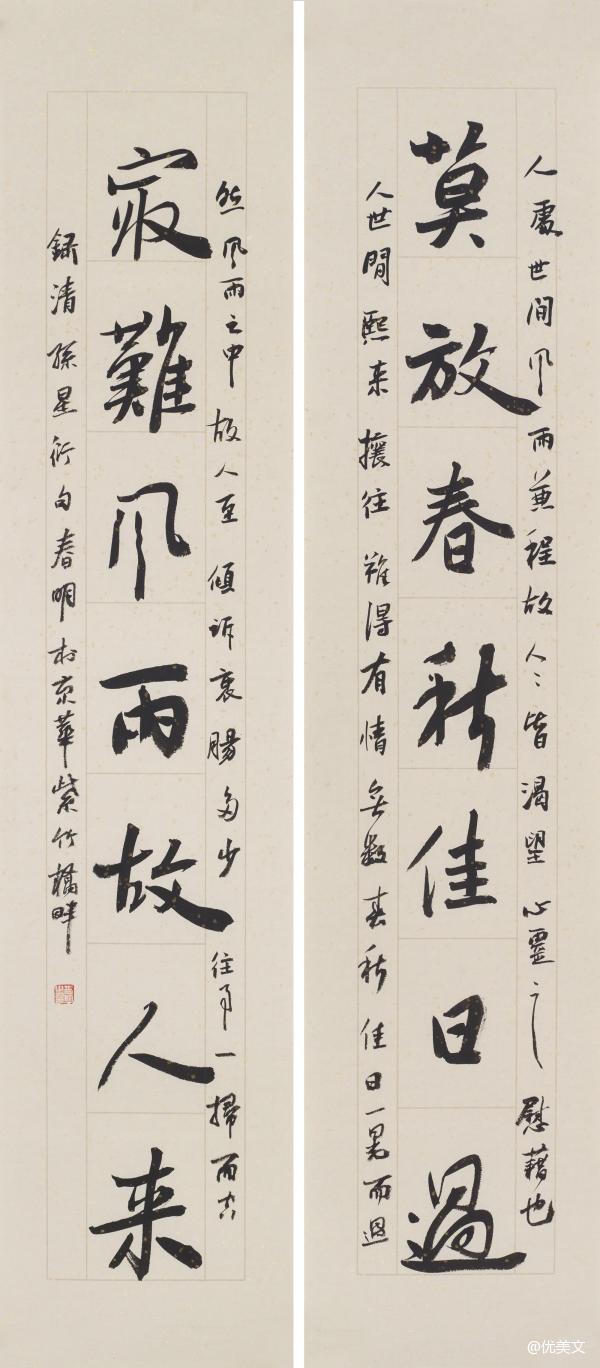 人處世間風雨兼程故人々皆渴望心靈之慰藉也
莫放春秋佳日過
人世間熙来攘往難得有情無數春秋佳日一晃而過
然風雨之中故人至傾訴衷腸多少往事一掃而空
寂難風雨故人来
錄清孫星衍句春明於京華紫竹橋畔
@优美文